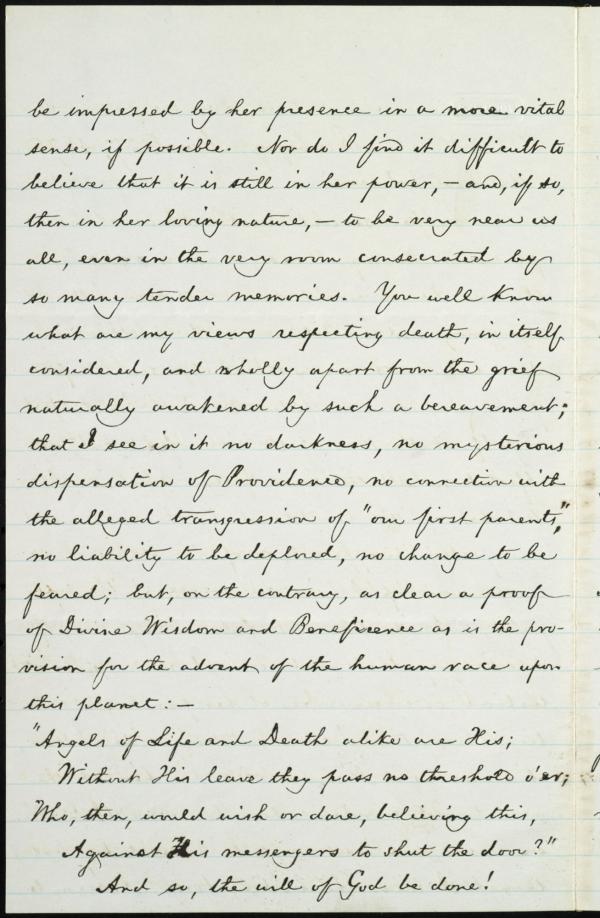 be impressed by her presence in a more vital
sense, if possible. Nor do I find it difficult to
believe that it is still in her power, — and, if so,
then in her loving nature, — to be very near us
all, even in the very room consecrated by
so many tender memories. You well know
what are my views respecting death, in itself
considered, and wholly apart from the grief
naturally awakened by such a bereavement;
that I see in it no darkness, no mysterious
dispensation of Providence, no connection with
the alleged transgression of "our first parents",
no liability to be deplored, no change to be
feared; but, on the contrary, as clear a proof
of Divine Wisdom and Beneficence as is the pro-
vision for the advent of the human race upon
this planet: —
"Angels of Life and Death alike are His;
Without His leave they pass no threshold o'er;
Who, then, would wish or dare, believing this,
Against His messengers to shut the door?"
And so, the will of God be done!